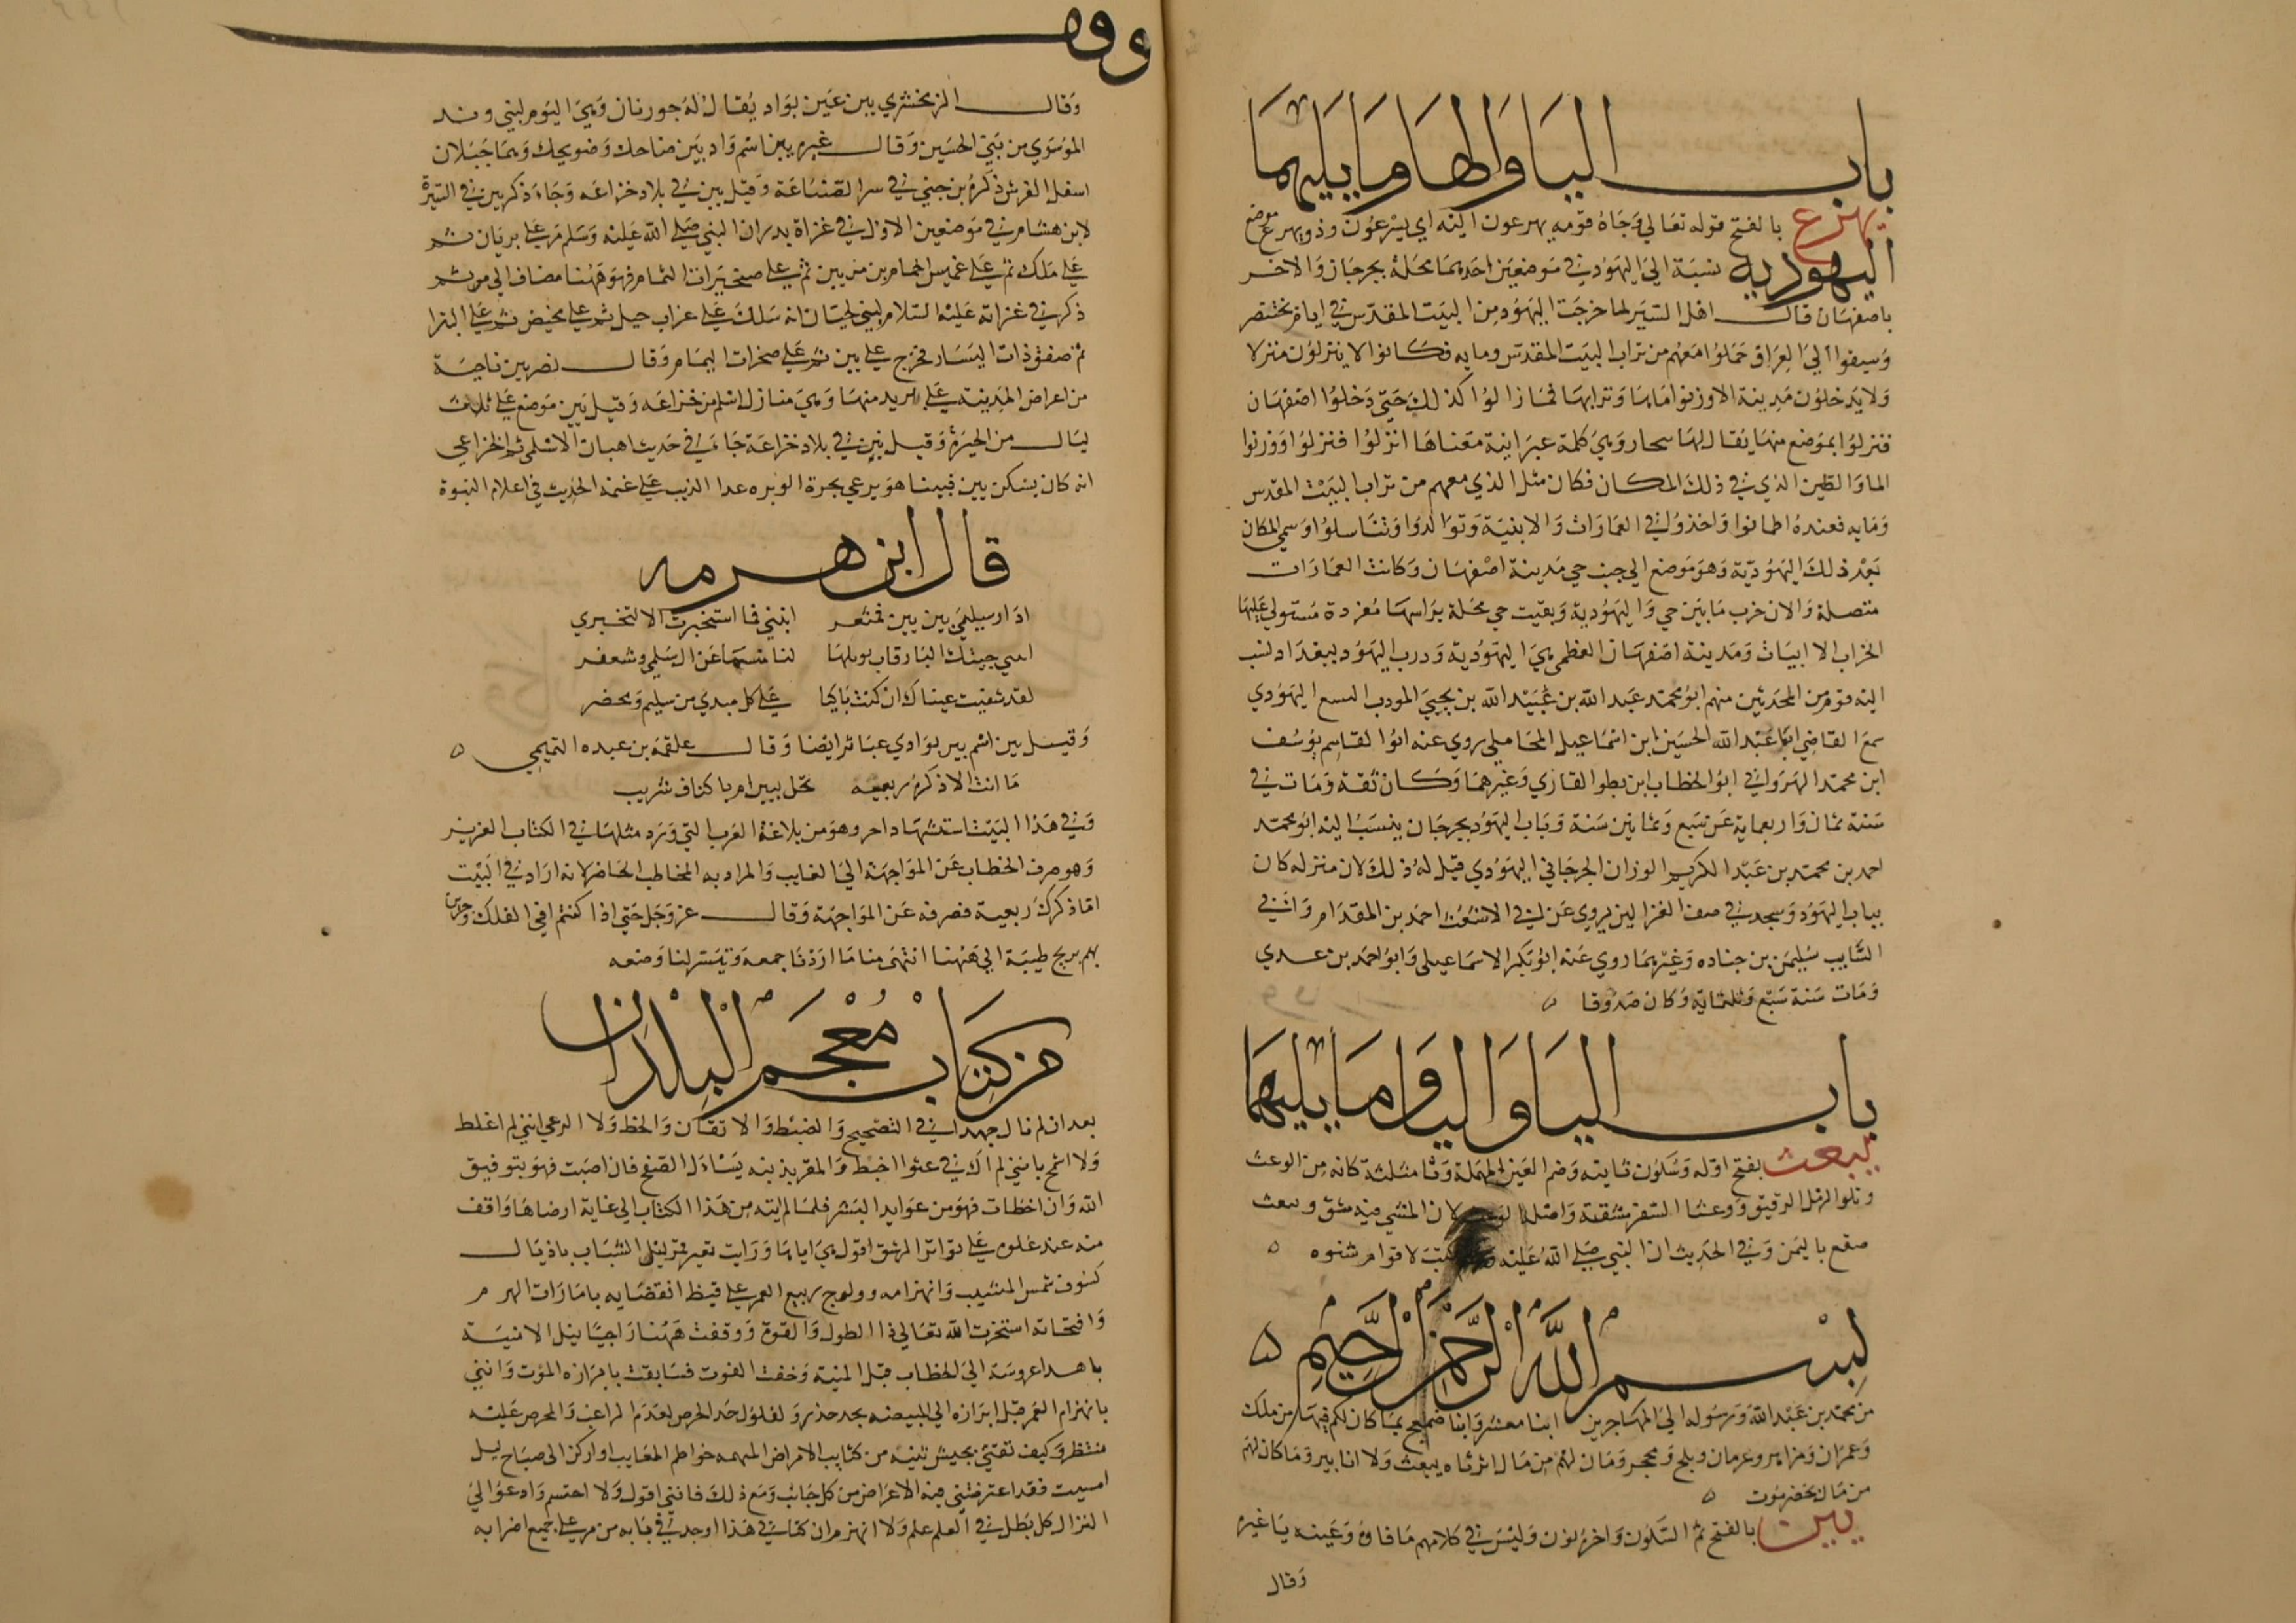 باب الياء والهاء وما يليهما
يهرع بالفتح قوله تعالي وجاه قومه يهرعون اليه اي يسرعون وذو يهرع موضع
اليهودية نسبة الي اليهود في موضعين احدهما محلة بجرجان والاخر
باصفهان قال اهل السير لما خرجت اليهود من البيت المقدس في ايام بختنصر
وسيقوا الي العراق حملوا معهم من تراب البيت المقدس ومايه فكانوا لا ينزلون منزلا
ولا يدخلون مدينة الا وزنوا ماها وترابها فما زالوا كذلك حتي دخلوا اصفهان
فنزلوا بموضع منها يقال لها سحار وهي كلمة عبرانية معناها انزلوا فنزلوا ووزنوا
الما والطين الذي في ذلك المكان فكان مثل الذي معهم من تراب البيت المقدس
ومايه فعنده اطمانوا واخذوا في العمارات والابنية وتوالدوا وتناسلوا وسمي المكان
بعد ذلك اليهودية وهو موضع الي جنب جي مدينة اصفهان وكانت العمارات
متصلة والان خرب ما بين جي واليهودية وبقيت جي محلة براسها مفردة مستولي عليها
الخراب الا ابيات ومدينة اصفهان العظمي هي اليهودية ودرب اليهود ببغداد نسب
اليه قوم من المحدثين منهم ابو محمد عبد الله بن عبيد الله بن يحيي المودب البيع اليهودي
سمع القاضي ابا عبد الله الحسين ابن اسماعيل المحاملي روي عنه ابوا القاسم يوسف
ابن محمد الهرواني ابو الخطاب ابن بطر القاري وغيرهما وكان ثقة ومات في
سنة ثمان واربعماية عن سبع وثمانين سنة وباب اليهود بجرجان ينسب اليه ابو محمد
احمد بن محمد بن عبد الكريم الوزان الجرجاني اليهودي قيل له ذلك لان منزله كان
بباب اليهود ومسجد في صف الغزالين يروي عن ابي الاشعث احمد بن المقدام وابي
السايب سليمن بن جناده وغيرهما روي عنه ابو بكر الاسماعيلي وابو احمد بن عدي
ومات سنة سبع وثلثماية وكان صدوقا ه
باب الياء والياء وما يليهما
يبعث بفتح اوله وسكون ثانيه وضم العين المهملة وثا مثلثة كانه من الوعث
وتلوا الرمل الرقيق ووعثا السفر مشقته واصله الوعث لان المشي فيه مشق ويبعث
صقع باليمن وفي الحديث ان النبي صلي الله عليه كتب لاقوام شنوه ه
بسم الله الرحمن الرحيم ه
من محمد بن عبد الله ورسوله الي المهاجرين ابنا معشر وابنا ضمعج بما كان لكم فيها من ملك
وعمران ومزاهر وعرمان وملح ومحجر وما كان لهم من مال اثرناه يبعث ولا انابير وما كان لهم
من مال بحضرموت ه
يين بالفتح ثم السكون واخره نون وليس في كلامهم ما فاؤه وعينه يا غيره
وقال
وقف
وقال الزمخشري يين عين بواد يقال له جورتان وهي اليوم لبني زيد
الموسوي من بني الحسين وقال غيره يين اسم واد بين ضاحك وضويحك وهما جبلان
اسفل الفرش ذكره بن جني في سر الصناعة وقيل يين في بلاد خزاعه وجاء ذكر يين في السيرة
لابن هشام في موضعين الاول في غزاة بدر ان النبي صلي الله عليه وسلم مر علي بريان ثم
علي ملك ثم علي غميس الحمام بن من يين ثم علي صخيرات الثمام فهو ههنا مضاف الي مر ثم
ذكر في غزاته عليه السلام لبني لحيان انه سلك علي غراب جبل ثم علي مخيض ثم علي البترا
ثم صفق ذات اليسار فخرج علي يين ثم علي صخرات اليمام وقال نصر يين ناحية
من اعراض المدينه علي بريد منها وهي منازل اسلم من خزاعه وقيل يين موضع علي ثلاث
ليال من الحيرة وقيل يين في بلاد خزاعة جا في حديث اهبان الاسلمي ثم الخزاعي
انه كان يسكن يين فبينا هو يرعي بحرة الوبره عدا الذيب علي غنمه الحديث في اعلام النبوة
قال ابن هرمه
ادار سليمي بين يين فمثعر ابنيني فما استخبرت الا لتخبري
ابيني حبتك البارقات بوبلها لنا منسما عن ال سلمي وشعفر
لقد شقيت عيناك ان كنت باكيا علي كل مبدي من سليم ومحضر
وقيل يين اسم بير بوادي عباثر ايضا وقال علقمه بن عبده التميمي ه
ما انت الا ذكره ربعيه تحل ببين ام باكناف شربب
وفي هذا البيت استشهاد اخر وهو من بلاغة العرب التي ورد مثلها في الكتاب العزيز
وهو صرف الخطاب عن المواجهة الي الغايب والمراد به المخاطب الحاضر لانه اراد في البيت
اما ذكرك ربعية فصرفه عن المواجهة وقال عز وجل حتي اذا كنتم في الفلك وجرين
بهم بريح طيبة الي ههنا انتهي منا ما اردنا جمعه وتيسر لنا وضعه
من كتاب معجم البلدان
بعد ان لم نال جهدا في التصحيح والضبط والاتقان والخط ولا ادعي انني لم اغلط
ولا اشمخ بانني لم اك في عشوا اخبط والمقر بذنبه يسال الصفح فان اصبت فهو بتوفيق
الله وان اخطات فهو من عوايد البشر فلما لم انته من هذا الكتاب الي غاية ارضاها واقف
منه عند غلوه علي تواتر الرشق اقول هي اياها ورايت تعبر قمر ليل الشباب باذيال
كسوف شمس المشيب وانهزامه وولوج ربيع العمر علي قيظ انقضايه بامارات الهرم
وافتحامه استخرت الله تعالي ذا الطول والقوة ووقفت ههنا راجيا نيل الامنية
باهدا عروسه الي الخطاب قبل المنية وخفت الفوت فسابقت بابرازه الموت وانني
بانهزام العمر قبل ابرازه الي المبيضه بجد حذر ولفلول حد الحرص لعدم الراغب والمحرص عليه
منتظر وكيف ثقتي بجيش تثنيه من كتايب الامراض المبهمه حواطم المعايب او اركن الي صباح ليل
امسيت فقد اعترضتني فيه الاعراض من كل جانب ومع ذلك فانني اقول ولا احتشم وادعوا الي
النزال كل بطل في العلم علم ولا انهزم ان كتابي هذا اوحد في بابه من مر علي جميع اضرابه